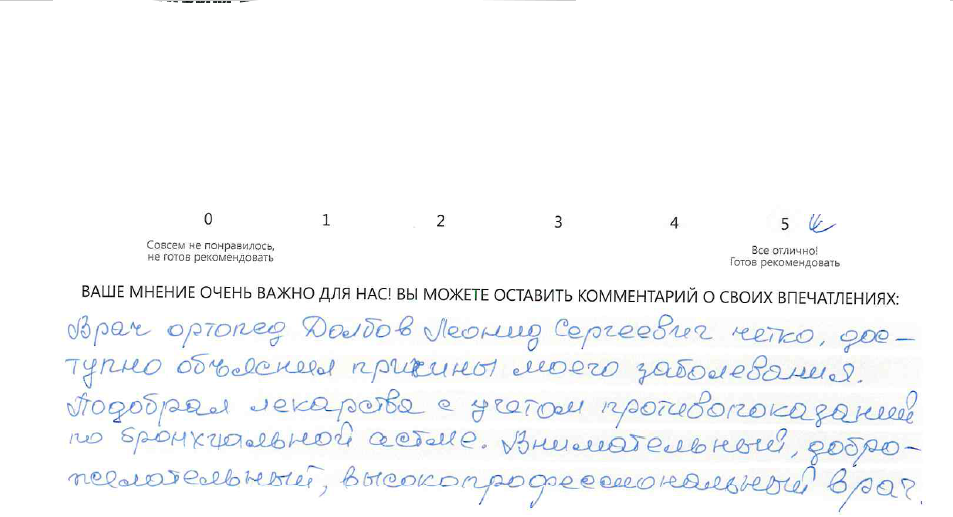 0 1 2 3 4 5
Совсем не понравилось,
не готов рекомендовать
Все отлично!
Готов рекомендовать
ВАШЕ МНЕНИЕ ОЧЕНЬ ВАЖНО ДЛЯ НАС! ВЫ МОЖЕТЕ ОСТАВИТЬ КОММЕНТАРИЙ О СВОИХ ВПЕЧАТЛЕНИЯХ:
Врач ортопед Долбов Леонид Сергеевич четко, дос-
тупно объяснил причины моего заболевания.
Подобрал лекарства с учетом противопоказаний
по бронхиальной астме. Внимательный, добро-
желательный, высокопрофессиональный врач.